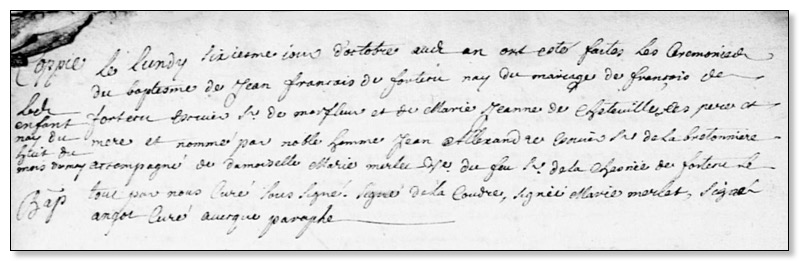 Coppie
Led.
enfant
nay du
huit du
mois de may
Bap
Le lundy sixiesme jour d'octobre aud. an ont esté faites les Ceremonies
du baptesme de Jean francois de fortecu nay du mariage de françois de
fortecu Escuier Sr. de marfleur et de Marie Jeanne de Choteville, ses pere et
mere et nommé par noble homme Jean Allexandre Escuier Sr. de la bretonniere
accompagné de damoiselle Marie merlet du feu Sr. de la Chesnée de fortecu Le
tout par nous Curé sous signé. signé de la Coudre, signée Marie merlet, signé
angot Curé avecque paraphe